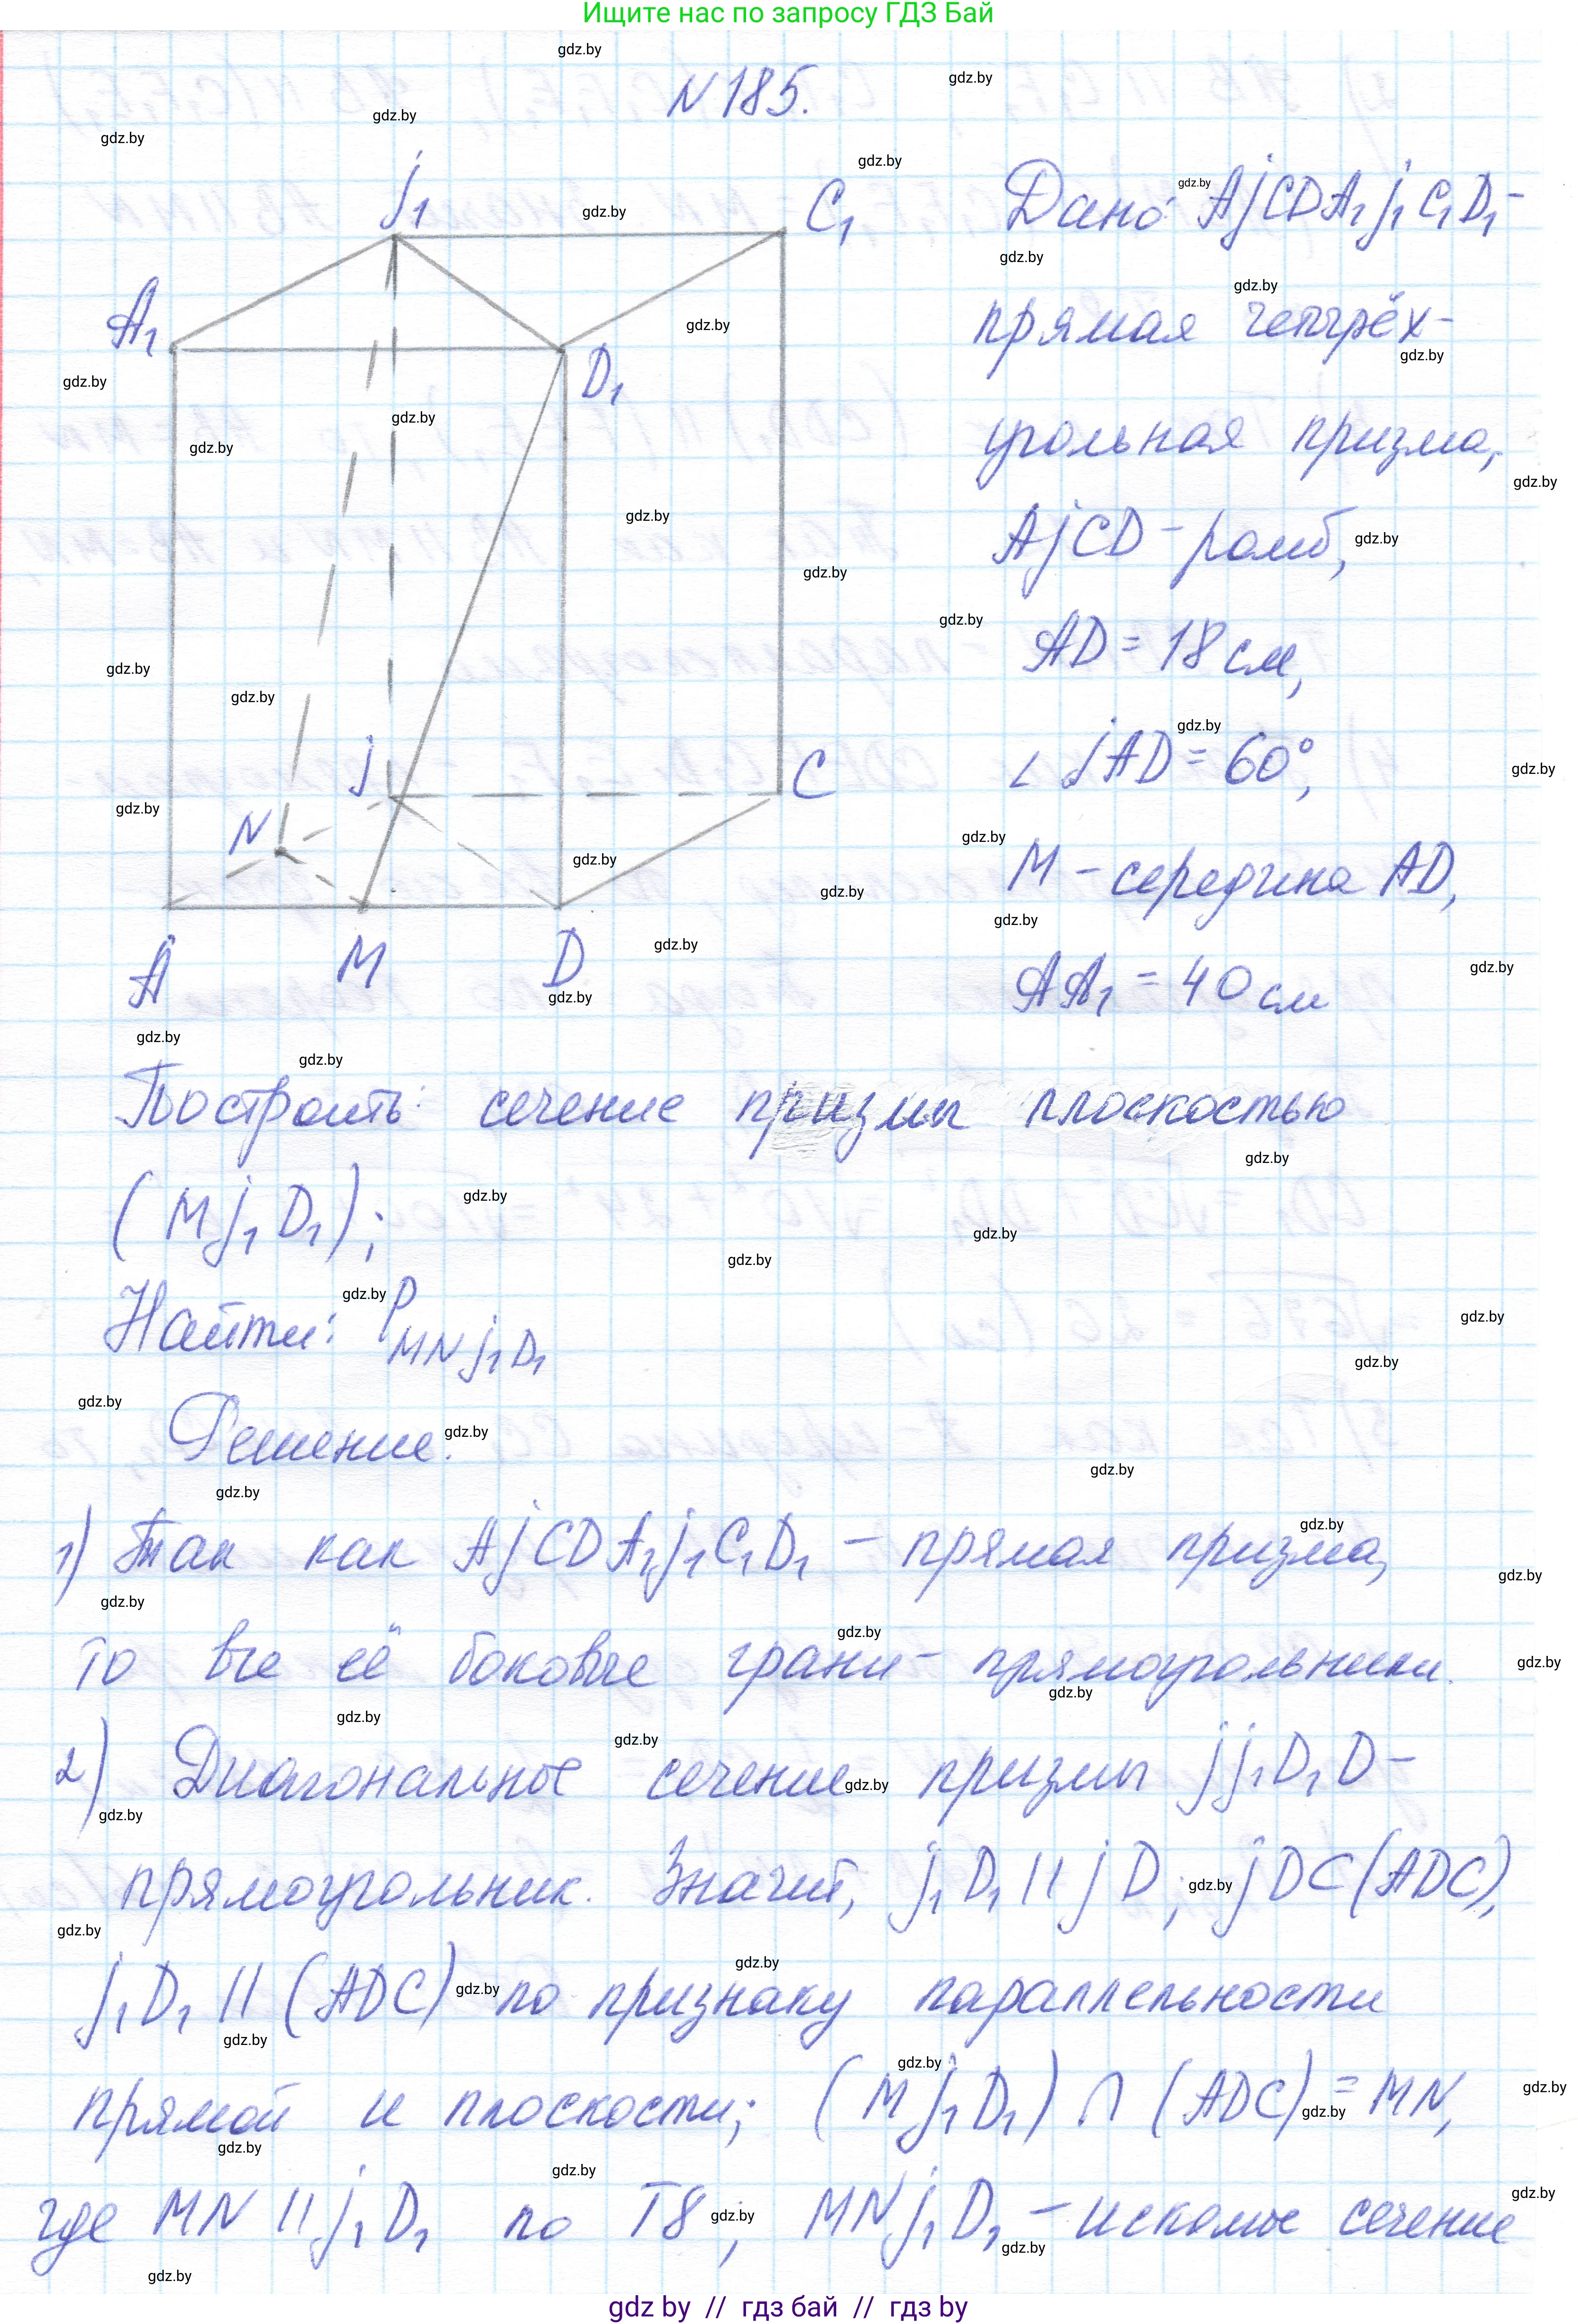 Ищите нас по запросу ГДЗ Бай
N 185.
j₁
C₁
A₁
D₁
j
C
N
A
M
D
Дано: AjCDA₁j₁C₁D₁ -
прямая четырёх-
угольная призма,
AjCD - ромб,
AD = 18 см,
∠ jAD = 60°,
M - середина AD,
AA₁ = 40 см
Построить: сечение призмы плоскостью
(Mj₁D₁);
Найти: P MNj₁D₁
Решение.
1) Так как AjCDA₁j₁C₁D₁ - прямая призма,
то все её боковые грани - прямоугольники.
2) Диагональное сечение призмы jj₁D₁D -
прямоугольник. Значит, j₁D₁ || jD; jD ⊂ (ADC),
j₁D₁ || (ADC) по признаку параллельности
прямой и плоскости; (Mj₁D₁) ∩ (ADC) = MN,
где MN || j₁D₁ по Т8; MNj₁D₁ - искомое сечение
gdz by // гдз бай // гдз by